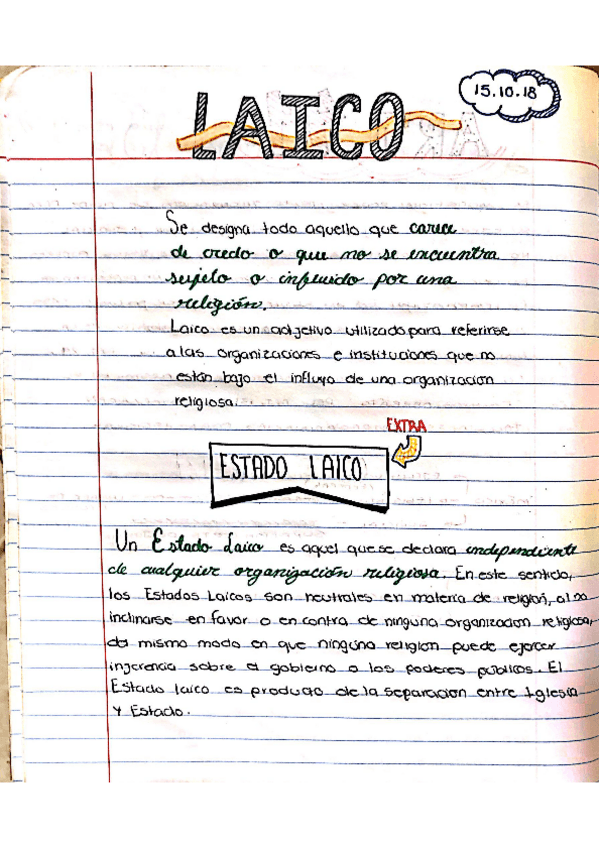 15.10.18
LAICO
Se designa todo aquello que carece
de credo o que no se encuentra
sujeto o influido por una
religión.
Laico es un adjetivo utilizado para referirse
a las organizaciones e instituciones que no
están bajo el influjo de una organizacion
religiosa.
EXTRA
ESTADO LAICO
Un Estado Laico es aquel que se declara independiente
de cualquier organización religiosa. En este sentido,
los Estados Laicos son neutrales en materia de religión, al no
inclinarse en favor o en contra de ninguna organizacion religiosa,
del mismo modo en que ninguna religion puede ejercer
injerencia sobre el gobierno o los poderes publicos. El
Estado laico es producto de la separacion entre Iglesia
Y Estado.